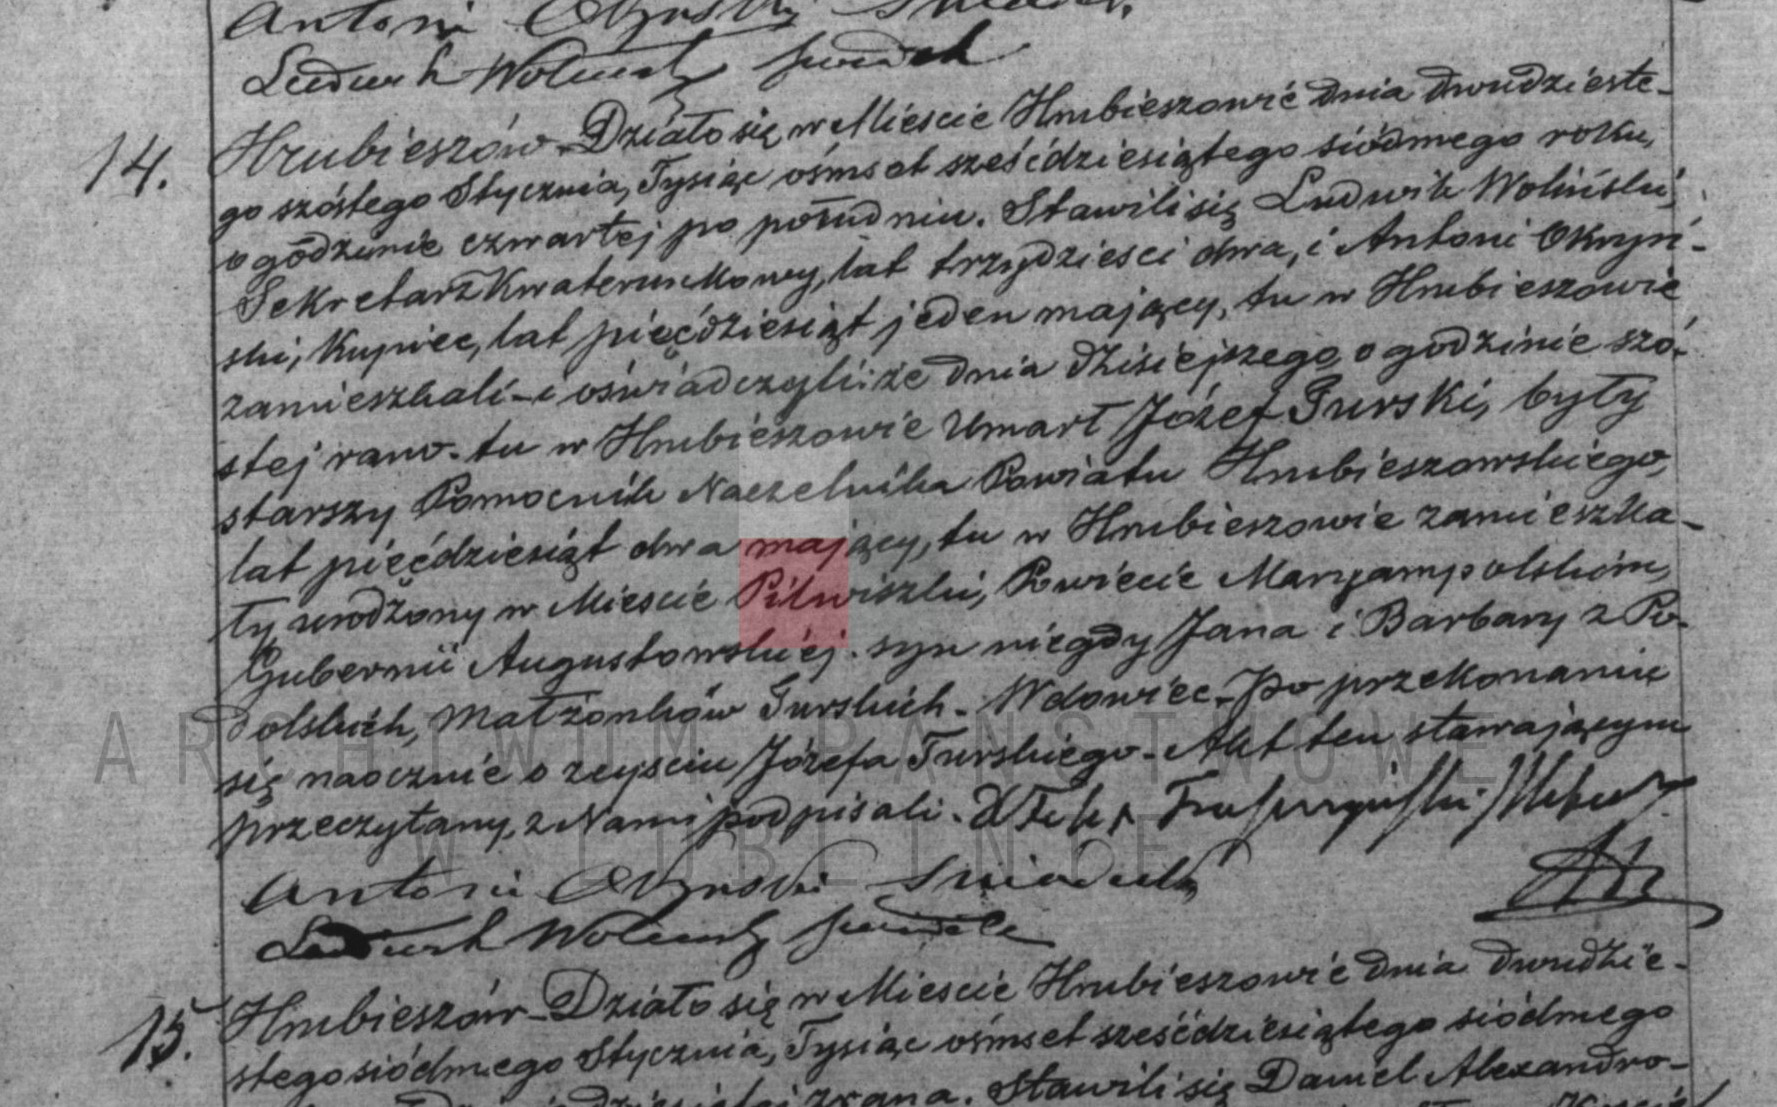 Antoni Okryński Świadek
Ludwik Woliński świadek
14. Hrubieszów. Działo się w Mieście Hrubieszowie dnia dwudzieste-
go szóstego Stycznia, Tysiąc ośmset sześćdziesiątego siódmego roku,
o godzinie czwartej po południu. Stawili się Ludwik Woliński,
Sekretarz Kwaterunkowy, lat trzydzieści dwa, i Antoni Okryń-
ski, Kupiec, lat pięćdziesiąt jeden mający, tu w Hrubieszowie
zamieszkali - i oświadczyli: że dnia dzisiejszego, o godzinie szó-
stej rano. tu w Hrubieszowie Umarł Józef Turski, były
starszy Pomocnik Naczelnika Powiatu Hrubieszowskiego,
lat pięćdziesiąt dwa mający, tu w Hrubieszowie zamieszka-
ły urodzony w Mieście Pilwiszki, Powiecie Maryampolskim,
Gubernii Augustowskiéj. syn niegdy Jana i Barbary z Po-
dolskich, Małżonków Turskich. Wdowiec. Po przekonaniu
się naocznie o zejściu Józefa Turskiego. Akt ten stawającym
przeczytany, z Nami podpisali.
Antoni Okryński Świadek
Ludwik Woliński świadek
ARCHIWUM PAŃSTWOWE
W LUBLINIE
15. Hrubieszów. Działo się w Mieście Hrubieszowie dnia dwudzie-
stego siódmego Stycznia, Tysiąc ośmset sześćdziesiątego siódmego
zrana. Stawili się Daniel Alexandro-